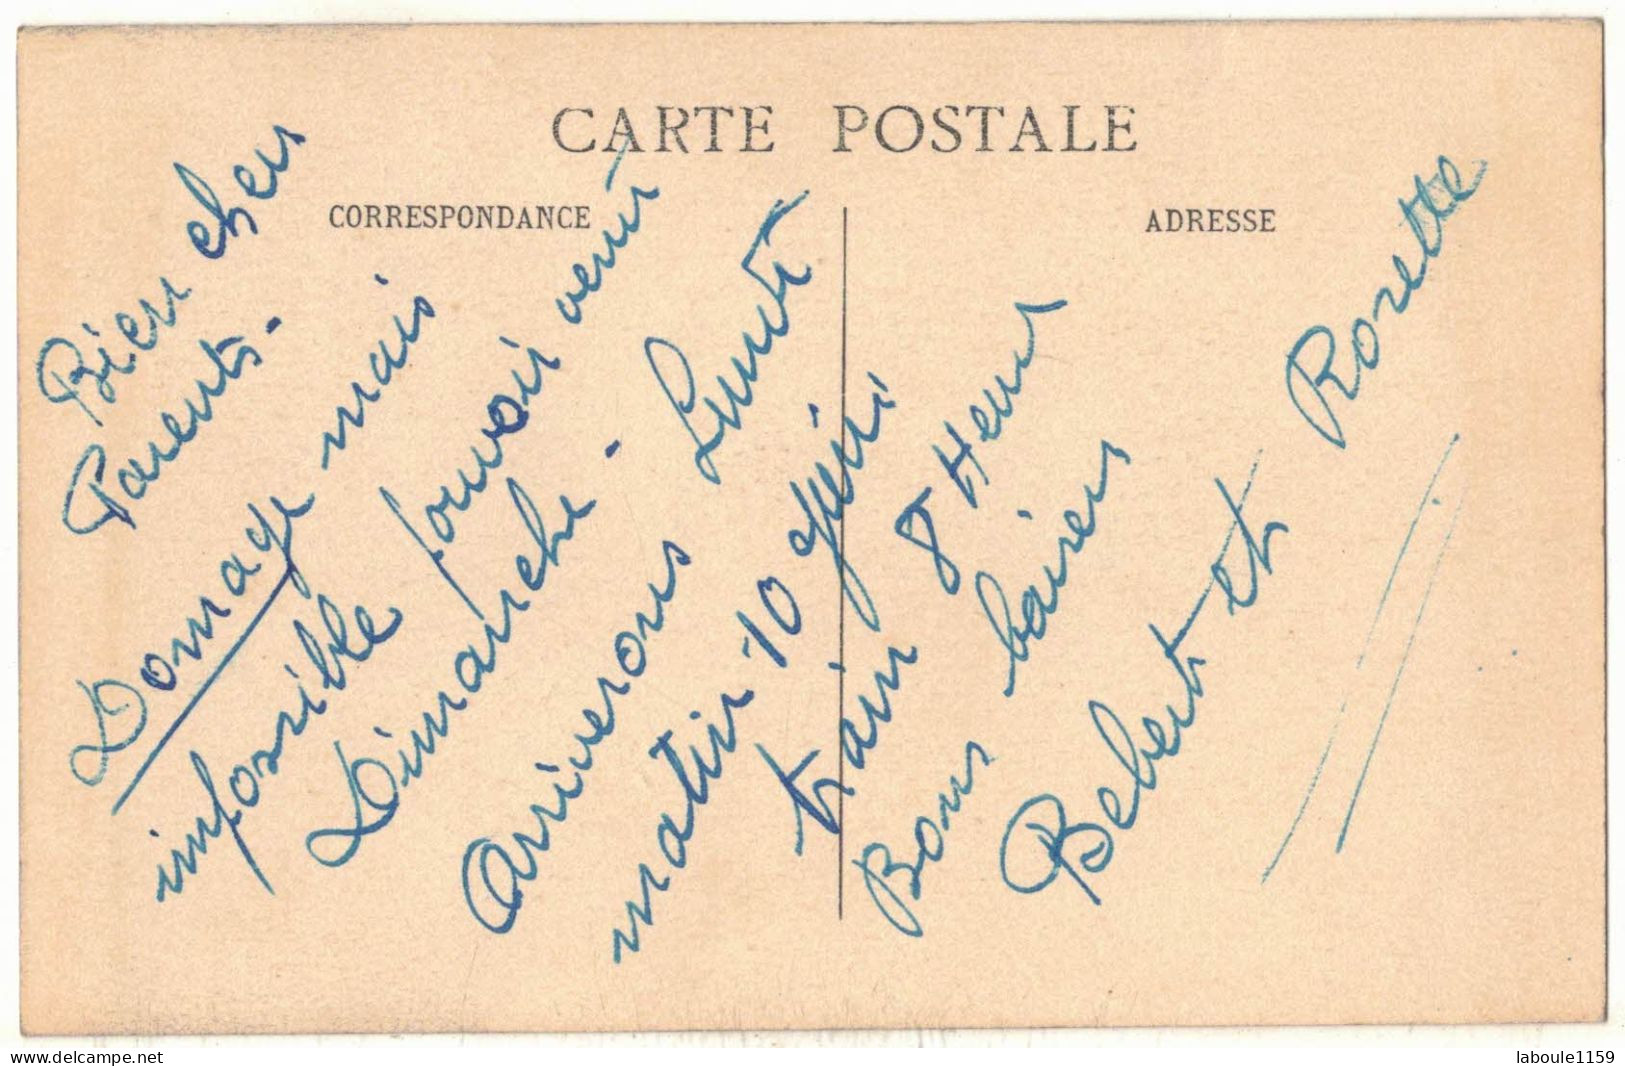 CARTE POSTALE
CORRESPONDANCE
ADRESSE
Bien chers
Parents.
Domage mais
impossible pouvoir venir
Dimanche.
Arriverons Lundi
matin 10
train 8 Heures
Bons baisers
Bebert et Rosette
www.delcampe.net
laboule1159